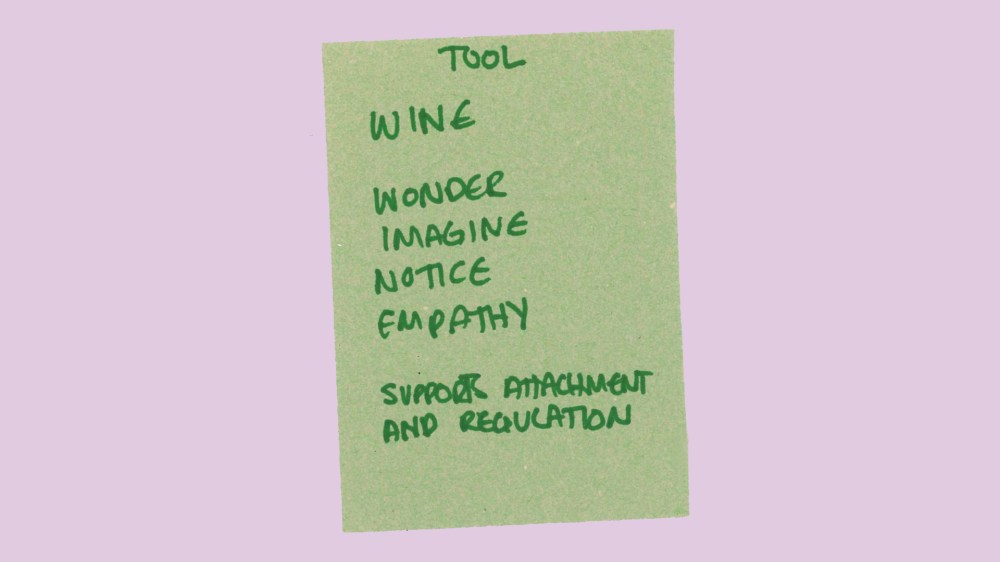 TOOL
WINE
WONDER
IMAGINE
NOTICE
EMPATHY
SUPPORTS ATTACHMENT
AND REGULATION